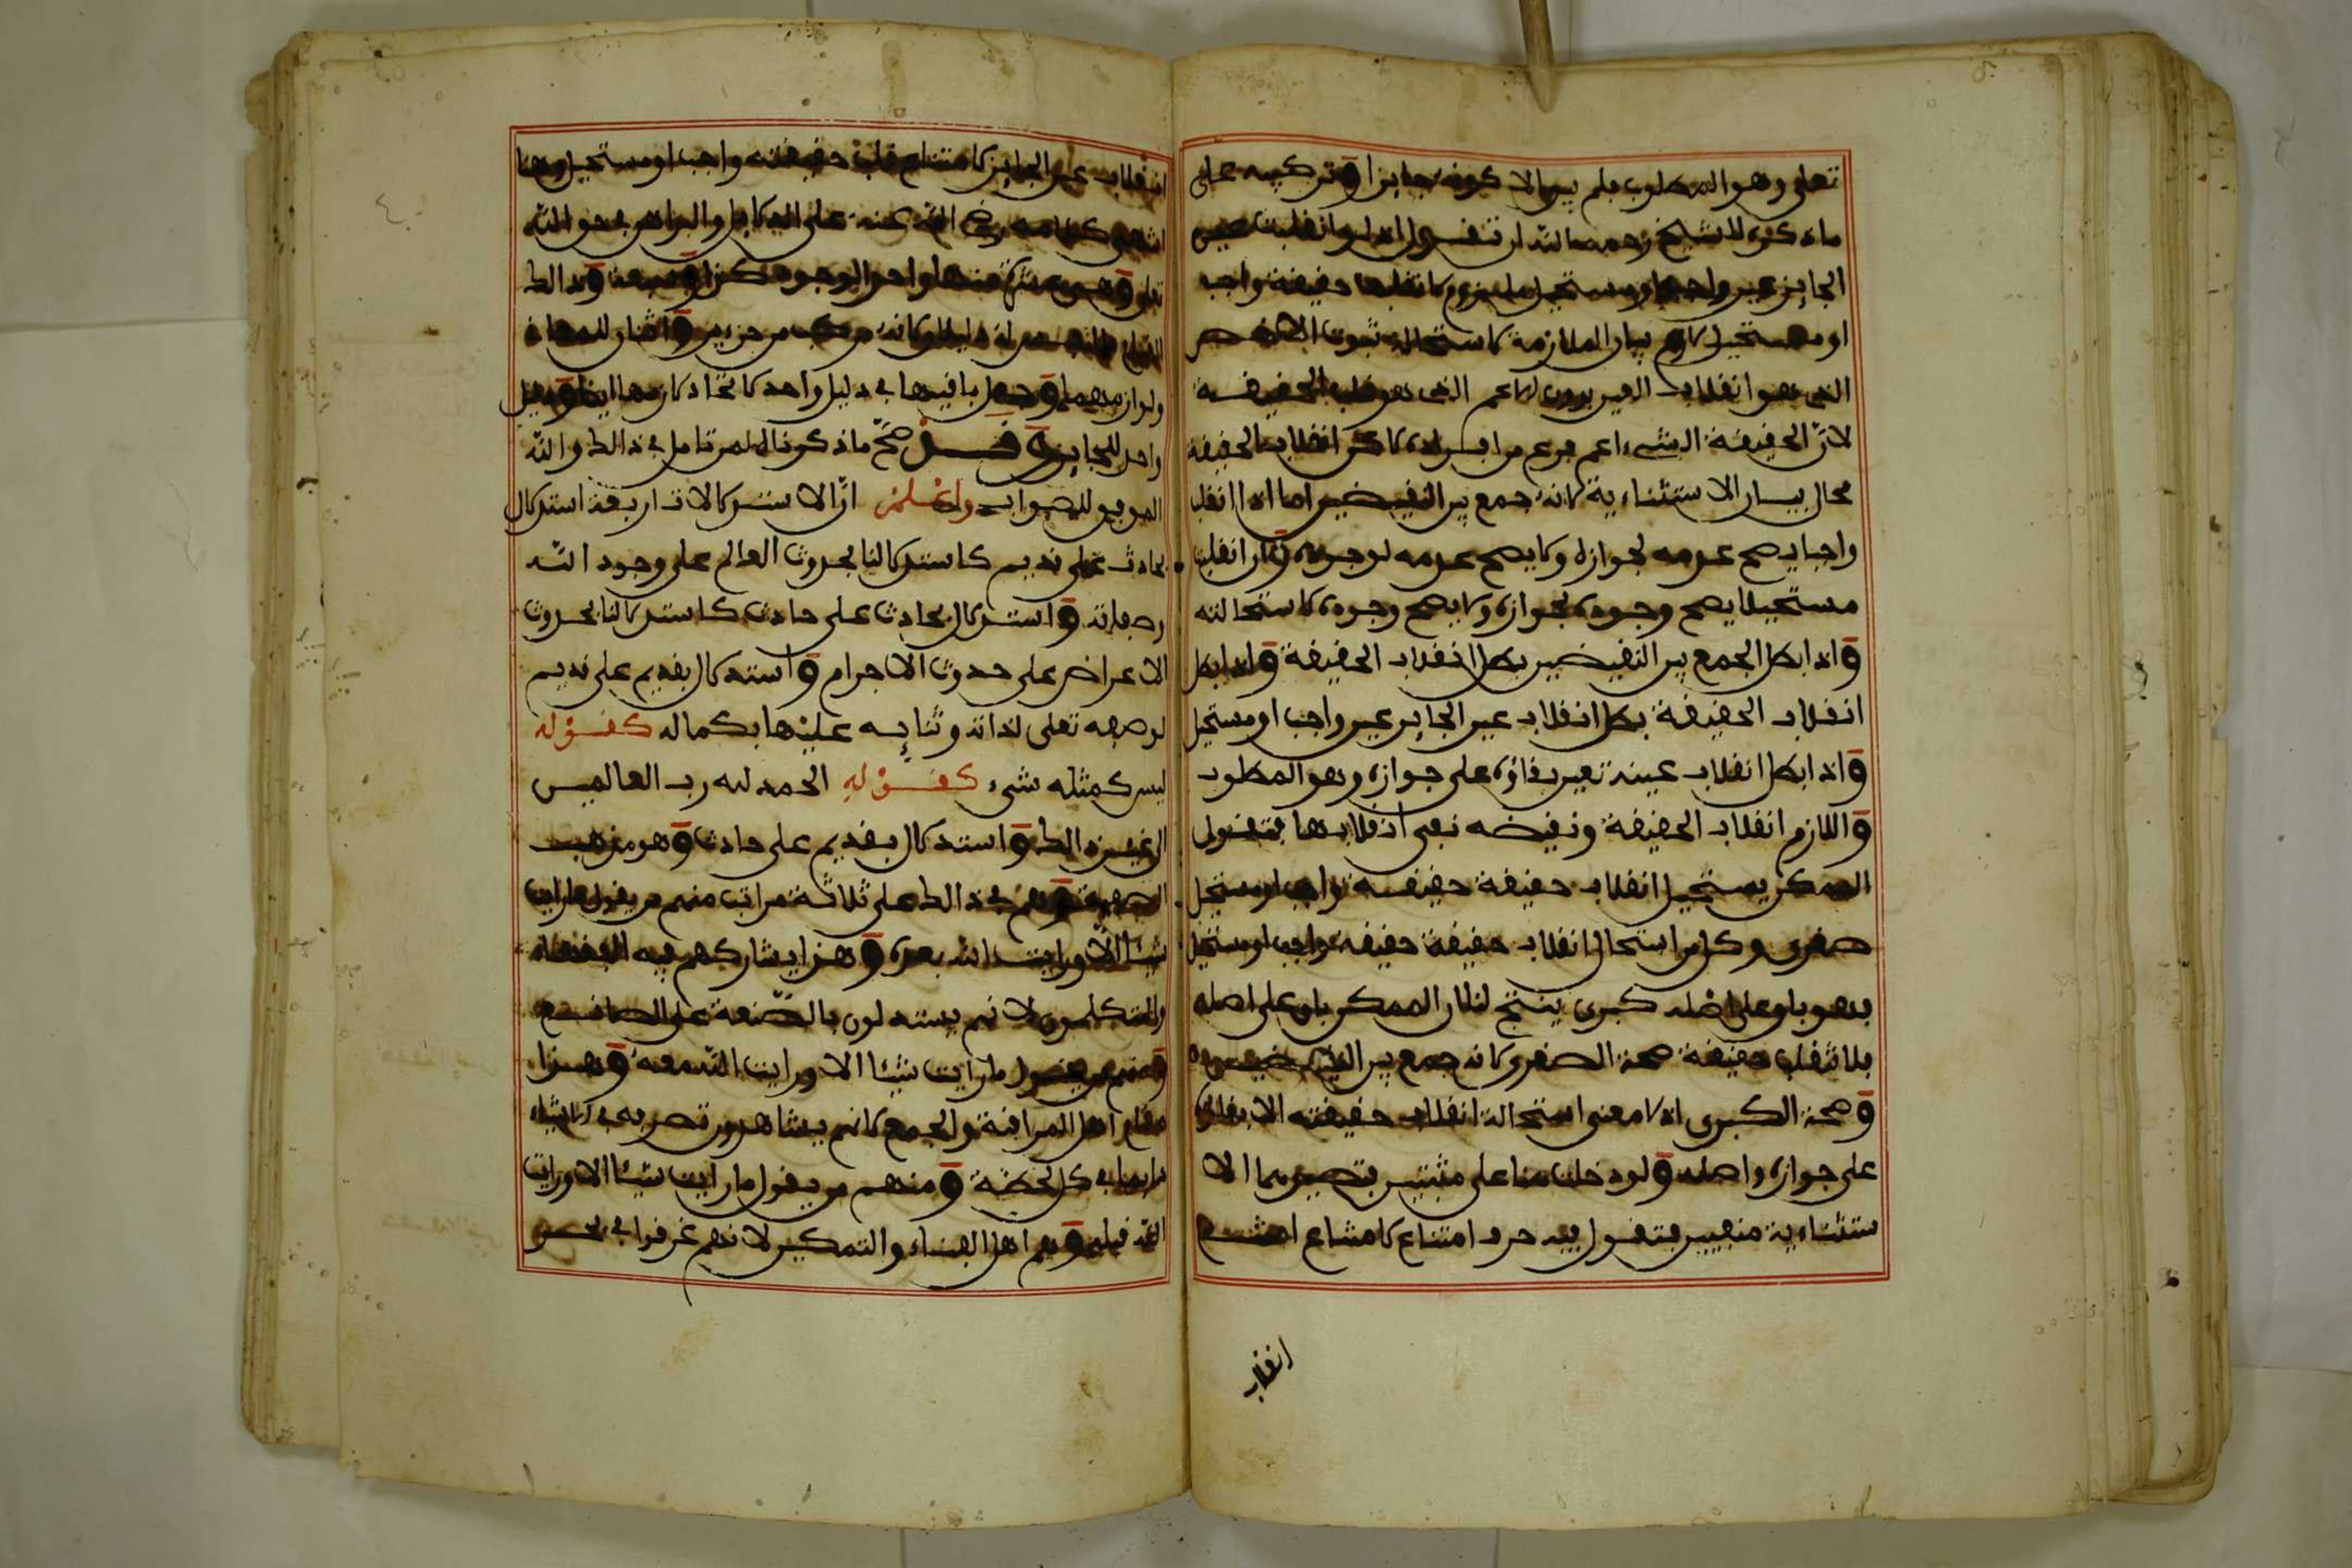 تعلى وهو المطلوب فلم يبق الا كونه جايزا وتركيبه على
ما ذكره الشيخ رحمه الله ان تقول لو انقلبت عين
الجايز عين واجب او مستحيل للزم انقلاب حقيقة واجب
او مستحيل بيان الملازمة لاستحالة ثبوت الاخص
الذي هو انقلاب العين بدون الاعم الذي هو قلب الحقيقة
لان الحقيقة الشيء اعم من افراده لاكن انقلاب الحقيقة
محال بيان الاستثناءية لانه جمع بين النقيضين اما اذا انقلب
واجبا يصح عدمه لجوازه ولا يصح عدمه لوجوبه وان انقلب
مستحيلا يصح وجوده لجوازه ولا يصح وجوده لاستحالته
واذا بطل الجمع بين النقيضين بطل انقلاب الحقيقة واذا بطل
انقلاب الحقيقة بطل انقلاب عين الجايز عين واجب او مستحيل
واذا بطل انقلاب عينه تعين بقاؤه على جوازه وهو المطلوب
واللازم انقلاب الحقيقة ونقيضه نفي انقلابها فتقول
الممكن يستحيل انقلاب حقيقة حقيقة واجب او مستحيل
صغرى وكل من استحال انقلاب حقيقة حقيقة واجب او مستحيل
فهو باق على اصله كبرى ينتج لنا ان الممكن باق على اصله
بلا قلب حقيقة صحة الصغرى لانه جمع بين النقيضين
وصحة الكبرى اذ لا معنى استحالة انقلاب حقيقته الا بقاؤه
على جوازه واصله ولو دخلت هنا على مثبتين فتصيرهما الا
ستثناءية منفيين فتقول فيه حرف امتناع لامتناع امتنع
انقلاب
انقلاب عين الجايز لامتناع قلب حقيقته واجب او مستحيل وهنا
انتهى كلامه رضي الله عنه على الدلايل والبراهن في حق الله
تعلى وهي عشرة منها واحد الوجود
ولوازمهما وجعل باقيها في دليل واحد لاتحاد لازمها ايضا
واحد للجايز وقد صح ما ذكرناه لمن تامل في ذالك والله
الموفق للصواب واعلم ان الاستدلالات اربعة استدلال
بحادث على قديم كاستدلالنا بحدوث العالم على وجود الله
وصفاته واستدلال بحادث على حادث كاستدلالنا بحدوث
الاعراض على حدوث الاجرام واستدلال بقديم على قديم
لوصفه تعلى لذاته وثنايه عليها بكماله كقوله
ليس كمثله شيء كقوله الحمد لله رب العالمين
الى غير ذالك واستدلال بقديم على حادث وهو مذهب
الصوفية وهم في ذالك على ثلاثة مراتب منهم من يقول ما رايت
شيئا الا ورايت الله بعده وهذا يشاركهم فيه الفقهاء
والمتكلمون لانهم يستدلون بالصنعة على الصانع
ومنهم من يقول ما رايت شيئا الا ورايت الله معه وهذا
مقام اهل المراقبة والجمع لانهم يشاهدون تصريفه في الاشياء
في كل لحظة ومنهم من يقول ما رايت شيئا الا ورايت
الله قبله وهم اهل الفناء والتمكين لانهم غرقوا في بحر